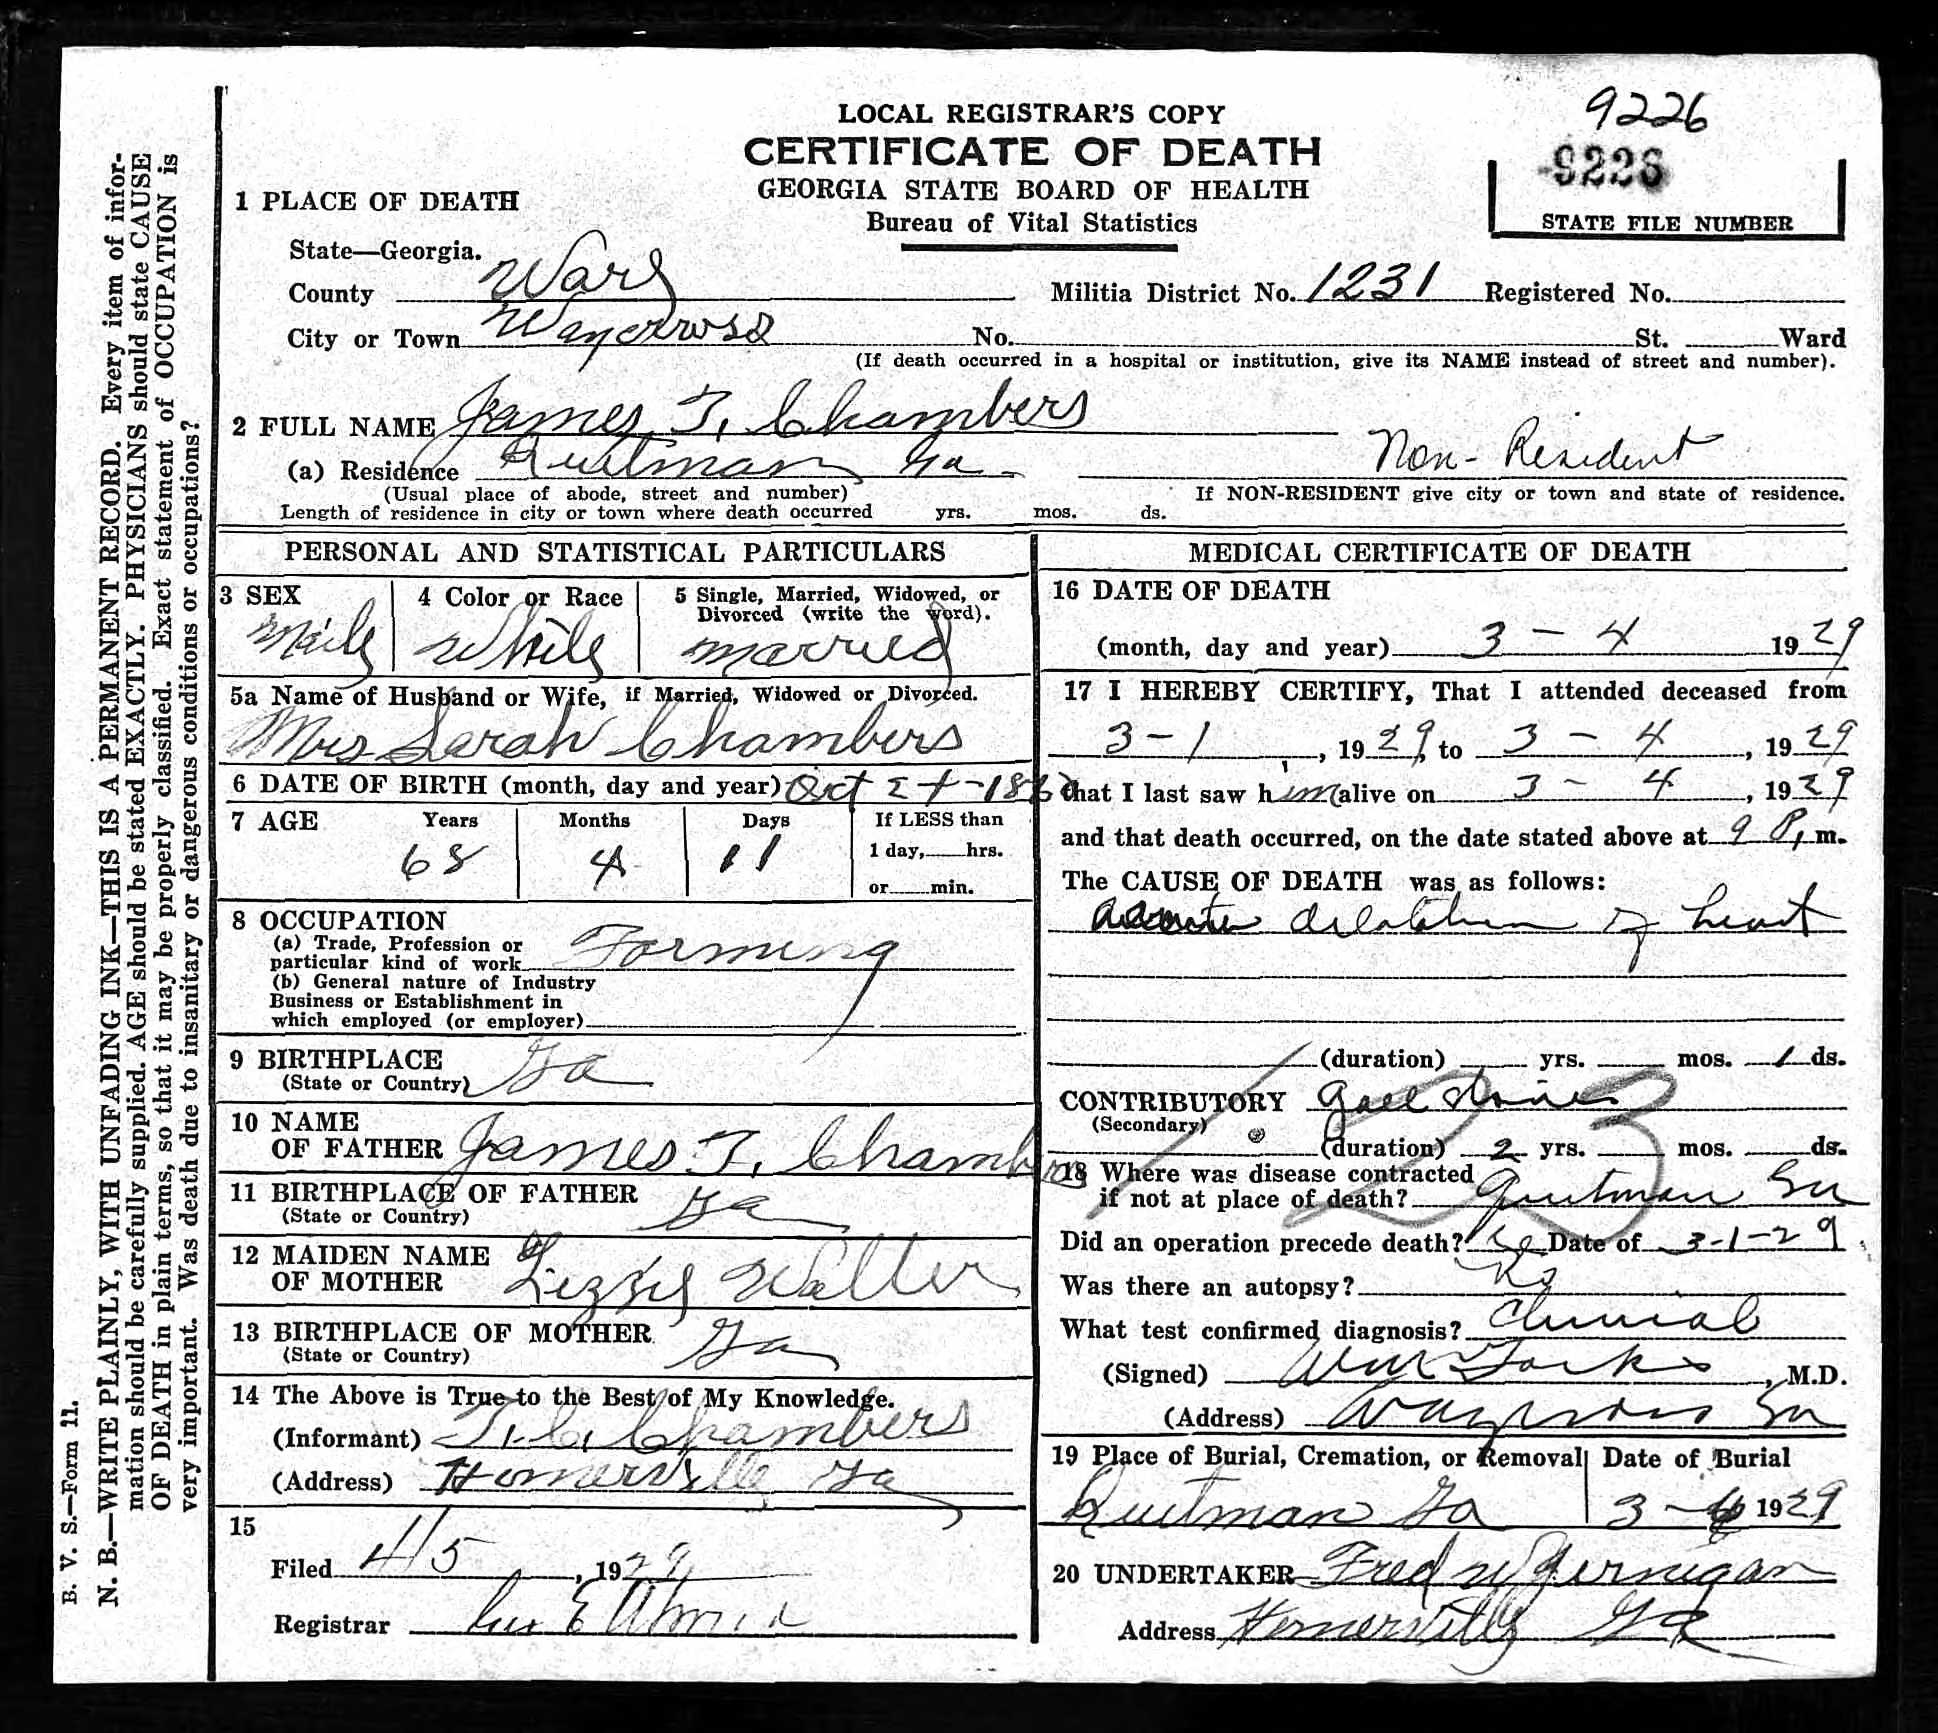 9226
LOCAL REGISTRAR'S COPY
CERTIFICATE OF DEATH
GEORGIA STATE BOARD OF HEALTH
Bureau of Vital Statistics
9226
STATE FILE NUMBER
1 PLACE OF DEATH
State—Georgia.
County Ware Militia District No. 1231 Registered No.
City or Town Waycross No. St. Ward
(If death occurred in a hospital or institution, give its NAME instead of street and number).
2 FULL NAME James T. Chambers
(a) Residence Quitman Ga Non-Resident
(Usual place of abode, street and number) If NON-RESIDENT give city or town and state of residence.
Length of residence in city or town where death occurred yrs. mos. ds.
PERSONAL AND STATISTICAL PARTICULARS
3 SEX 4 Color or Race 5 Single, Married, Widowed, or
Divorced (write the word).
Male White married
5a Name of Husband or Wife, if Married, Widowed or Divorced.
Mrs Sarah Chambers
6 DATE OF BIRTH (month, day and year) Oct
7 AGE Years Months Days If LESS than
68 4 11 1 day, hrs.
or min.
8 OCCUPATION
(a) Trade, Profession or
particular kind of work Farming
(b) General nature of Industry
Business or Establishment in
which employed (or employer)
9 BIRTHPLACE
(State or Country) Ga
10 NAME
OF FATHER James T. Chambers
11 BIRTHPLACE OF FATHER
(State or Country) Ga
12 MAIDEN NAME
OF MOTHER Lizzie
13 BIRTHPLACE OF MOTHER
(State or Country) Ga
14 The Above is True to the Best of My Knowledge.
(Informant) T. C. Chambers
(Address) Homerville Ga
15
Filed 4/5, 1929
Registrar
MEDICAL CERTIFICATE OF DEATH
16 DATE OF DEATH
(month, day and year) 3 - 4 1929
17 I HEREBY CERTIFY, That I attended deceased from
3-1, 1929, to 3 - 4, 1929
that I last saw him alive on 3 - 4, 1929
and that death occurred, on the date stated above at 9 P. m.
The CAUSE OF DEATH was as follows:
acute dilatation of heart
(duration) yrs. mos. 1 ds.
CONTRIBUTORY Gall stones
(Secondary)
(duration) 2 yrs. mos. ds.
123
18 Where was disease contracted
if not at place of death? Quitman Ga
Did an operation precede death? Date of 3-1-29
Was there an autopsy? No
What test confirmed diagnosis? Clinical
(Signed) , M.D.
(Address) Waycross Ga
19 Place of Burial, Cremation, or Removal Date of Burial
Quitman Ga 3- 1929
20 UNDERTAKER Fred W Jernigan
Address Homerville Ga
B. V. S.—Form 11.
N. B.—WRITE PLAINLY, WITH UNFADING INK—THIS IS A PERMANENT RECORD. Every item of infor-
mation should be carefully supplied. AGE should be stated EXACTLY. PHYSICIANS should state CAUSE
OF DEATH in plain terms, so that it may be properly classified. Exact statement of OCCUPATION is
very important. Was death due to insanitary or dangerous conditions or occupations?